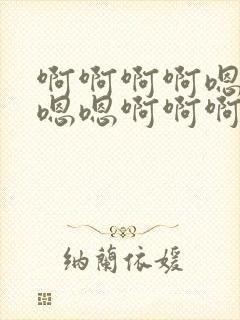 啊啊啊啊嗯
嗯嗯啊啊啊
纳蘭依媛